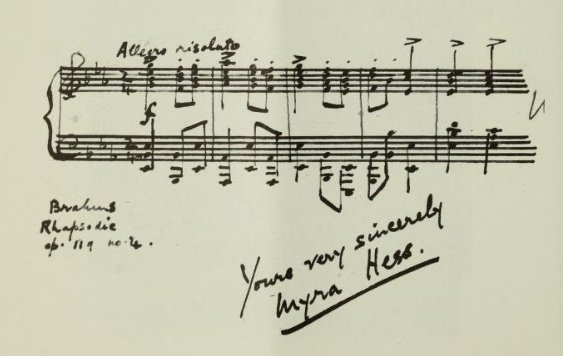 Allegro risoluto
f
Brahms
Rhapsodie
op. 119 no. 4.
Yours very sincerely
Myra Hess.